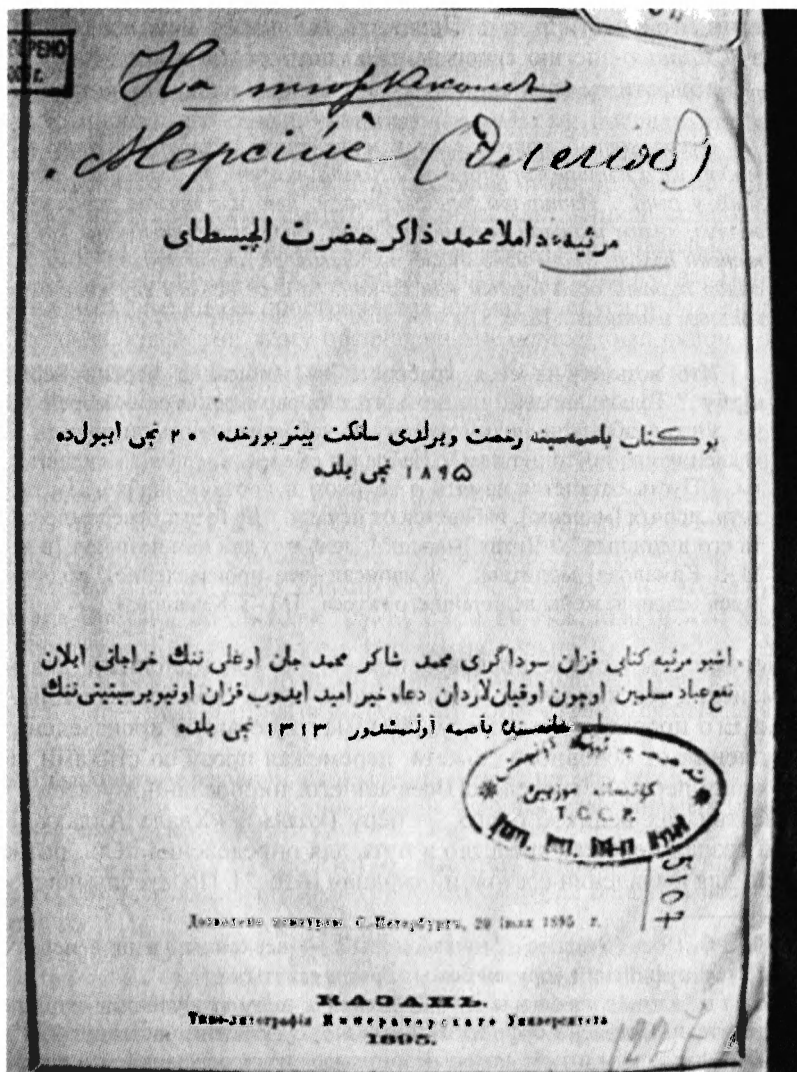 РЕНО
г.
На тюркском
Мерсiне
مرثیهٔ داملا محمد ذاکر حضرت الچیسطای
بو کتاب باصمه‌سینه رخصت ویرلدی سانکت پیتربورخده ۲۰ نجی اییول‌ده
۱۸۹۵ نجی یلده
اشبو مرثیه کتابی قزان سوداگری محمد شاکر محمد جان اوغلی ننك خراجاتی ایلان
نفع عباد مسلمین اوچون اوقیان‌لاردان دعاء خیر امید ایدوب قزان اونیویرسیتیتی‌ننك
طبع خانه‌سنده باصمه اولنمشدور ۱۳۱۳ نجی یلده
Т.С.С.Р.
5107
Дозволено цензурою. С.-Петербургъ, 20 іюля 1895 г.
КАЗАНЬ.
Типо-литографія Императорскаго Университета
1895.